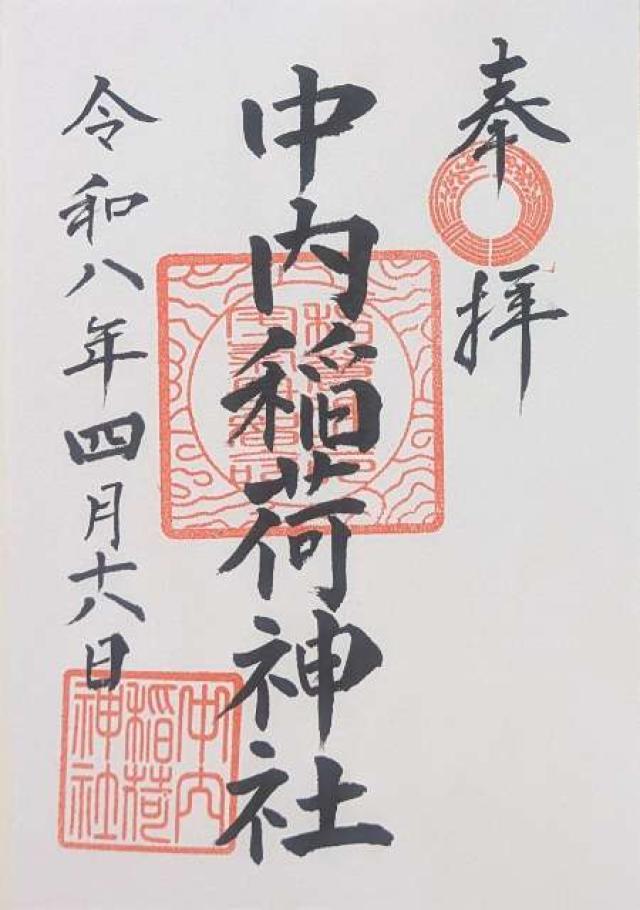 奉拝
中内稲荷神社
令和八年四月十八日
中内
稲荷
神社